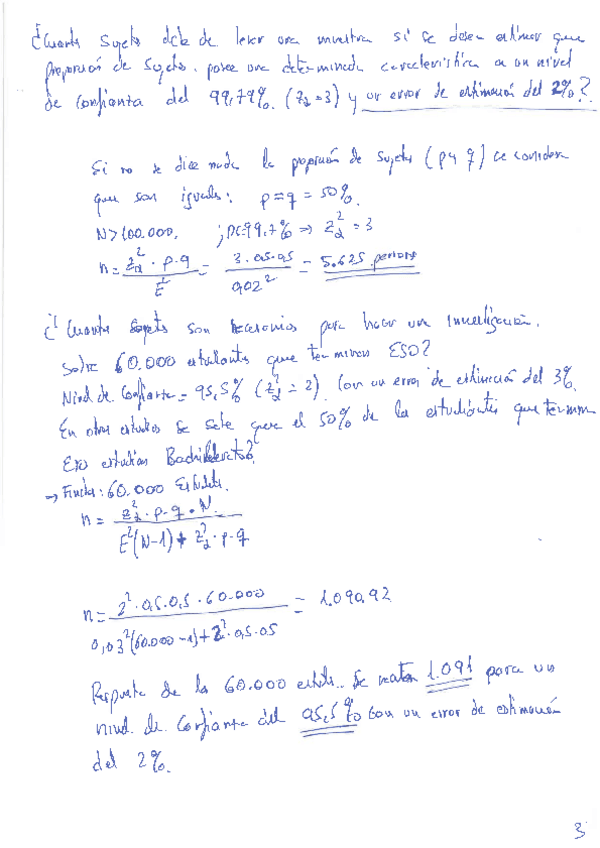 ¿Cuantos Sujetos debe de tener una muestra si se desea estimar que
proporción de Sujetos posee una determinada característica a un nivel
de Confianza del 99,79%. (Z₂=3) y un error de estimación del 2%?
Si no se dice nada la proporción de Sujetos (p y q) se considera
que son iguales: p=q=50%.
N>100.000. ; pc99.7% => Z²₂ = 3
n = Z²₂ · p·q / E² = 3 · 0,5·0,5 / 0,02² = 5.625 personas
¿Cuantos Sujetos son necesarios para hacer una Investigación.
Sobre 60.000 estudiantes que terminan ESO?
Nivel de Confianza = 95,5% (Z²₂ = 2). Con un error de estimación del 3%.
En otros estudios se sabe que el 50% de los estudiantes que terminan
ESO estudian Bachillerato?
→ Finita: 60.000
n = Z²₂ · p·q · N / E²(N-1) + Z²₂ · p·q
n = 2² · 0,5·0,5 · 60.000 / 0,03²(60.000-1) + 2² · 0,5·05 = 1.090,92
Respuesta de los 60.000 Se 1.091 para un
nivel de Confianza del 95,5% con un error de estimación
del 2%.
3